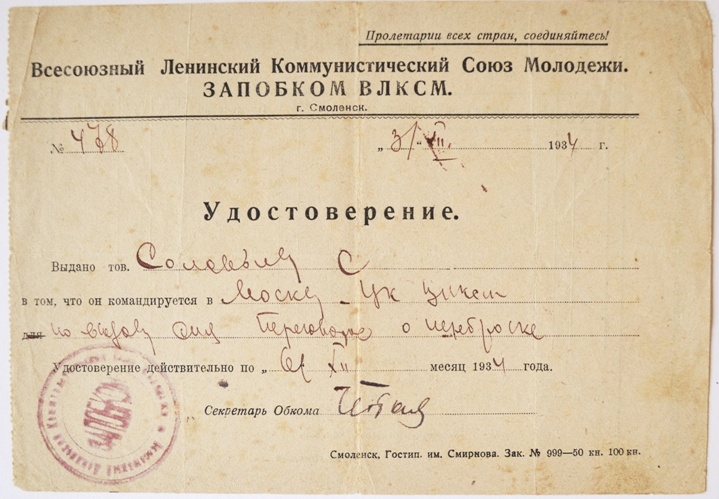 Пролетарии всех стран, соединяйтесь!
Всесоюзный Ленинский Коммунистический Союз Молодежи.
ЗАПОБКОМ ВЛКСМ.
г. Смоленск.
№ 478 „ 3/ XII. 1934 г.
Удостоверение.
Выдано тов. С
в том, что он командируется в Москву ЦК
для по вызову для о переброске
Удостоверение действительно по „ XII месяц 1934 года.
Секретарь Обкома
ЗАПОБКОМ
Смоленск, Гостип. им. Смирнова. Зак. № 999—50 кн. 100 кн.